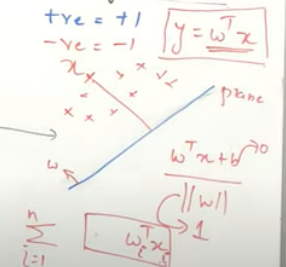 +ve = +1
-ve = -1
y = wᵀx
x
plane
wᵀx + b → 0
||w||
→ 1
w
n
∑ wᵢᵀxᵢ
i=1